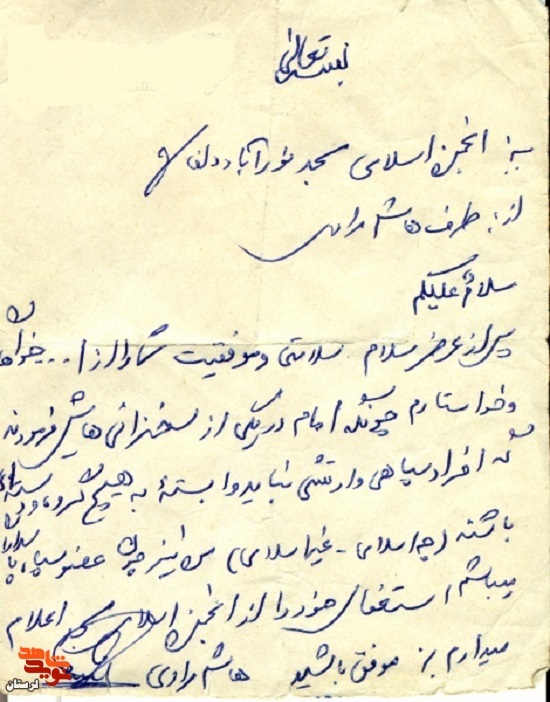 بسمه تعالی
به: انجمن اسلامی مسجد نورآباد دلفان
از: طرف هاشم مرادی
سلام علیکم
پس از عرض سلام سلامتی و موفقیت شما را از ا... خواهان
و خواستارم چونکه امام در یکی از سخنرانی هایش فرمودند
که افراد سپاهی و ارتشی نباید وابسته به هیچ گروه و
باشند (چه اسلامی - غیر اسلامی) من نیز چون عضو سپاه
میباشم استعفای خود را از انجمن اسلامی مسجد اعلام
میدارم موفق باشید هاشم مرادی
نوید شاهد
لرستان